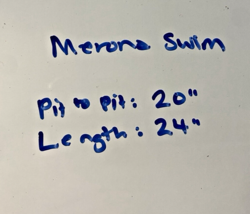 Merona Swim
Pit to Pit: 20"
Length: 24"